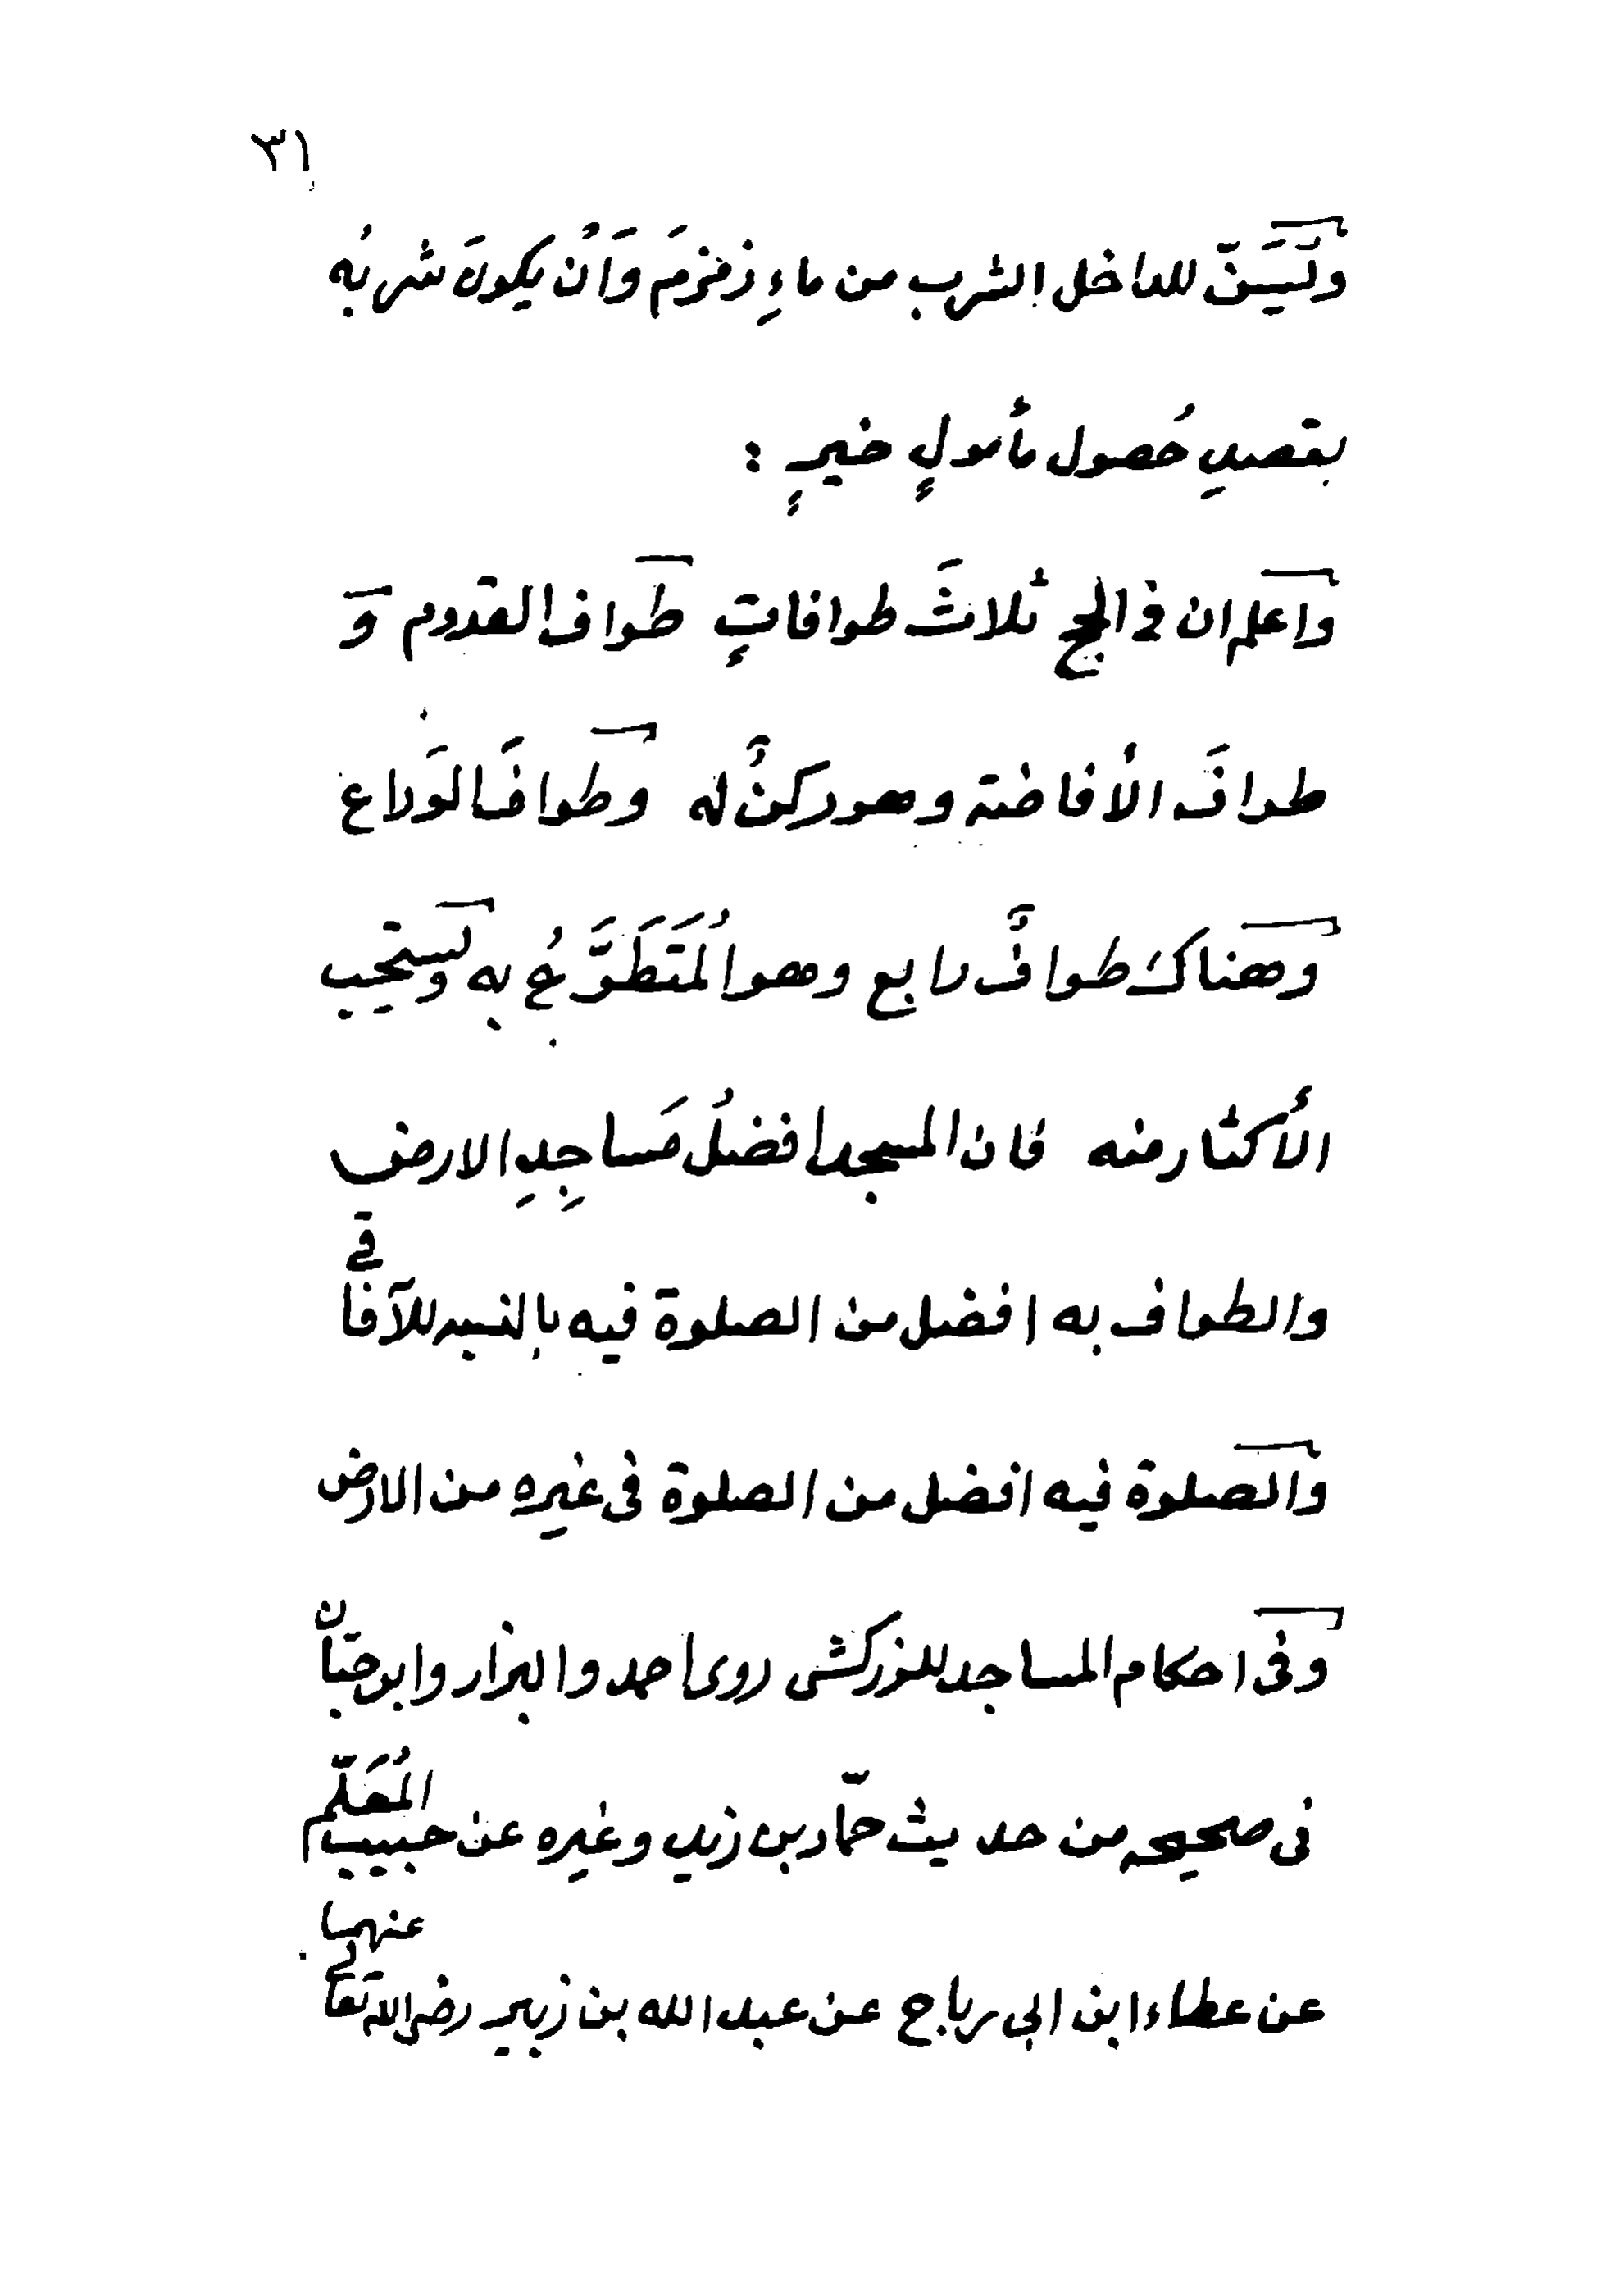 ٣١
ويُسَنّ للداخل الشرب من ماءِ زمزمَ وَاَنْ يكونَ شربُه
بقصدِ حُصول مأمولٍ خيرٍ :
واعلم ان فى الحج ثلاثَ طوافاتٍ طَواف القدوم وَ
طوافَ الأفاضة وهو ركنٌ له وطوافَ الوَداع
وهناك طوافٌ رابع وهو المُتَطَوَّعُ به ويستحب
الأكثار منه فان المسجد افضلُ مَساجِدِ الارض
والطواف به افضل من الصلوة فيه بالنسبه للآفاقى
والصلوة فيه افضل من الصلوة فى غيره من الارض
وفى احكام المساجد للزركشى روى احمد والبزار وابو حبّان
فى صحيحه من حديث حمّاد بن زيد وغيره عن حبيب المُعَلّم
عن عطاء ابن ابى رباح عن عبد الله بن زبير رضى الله تعالى عنهما